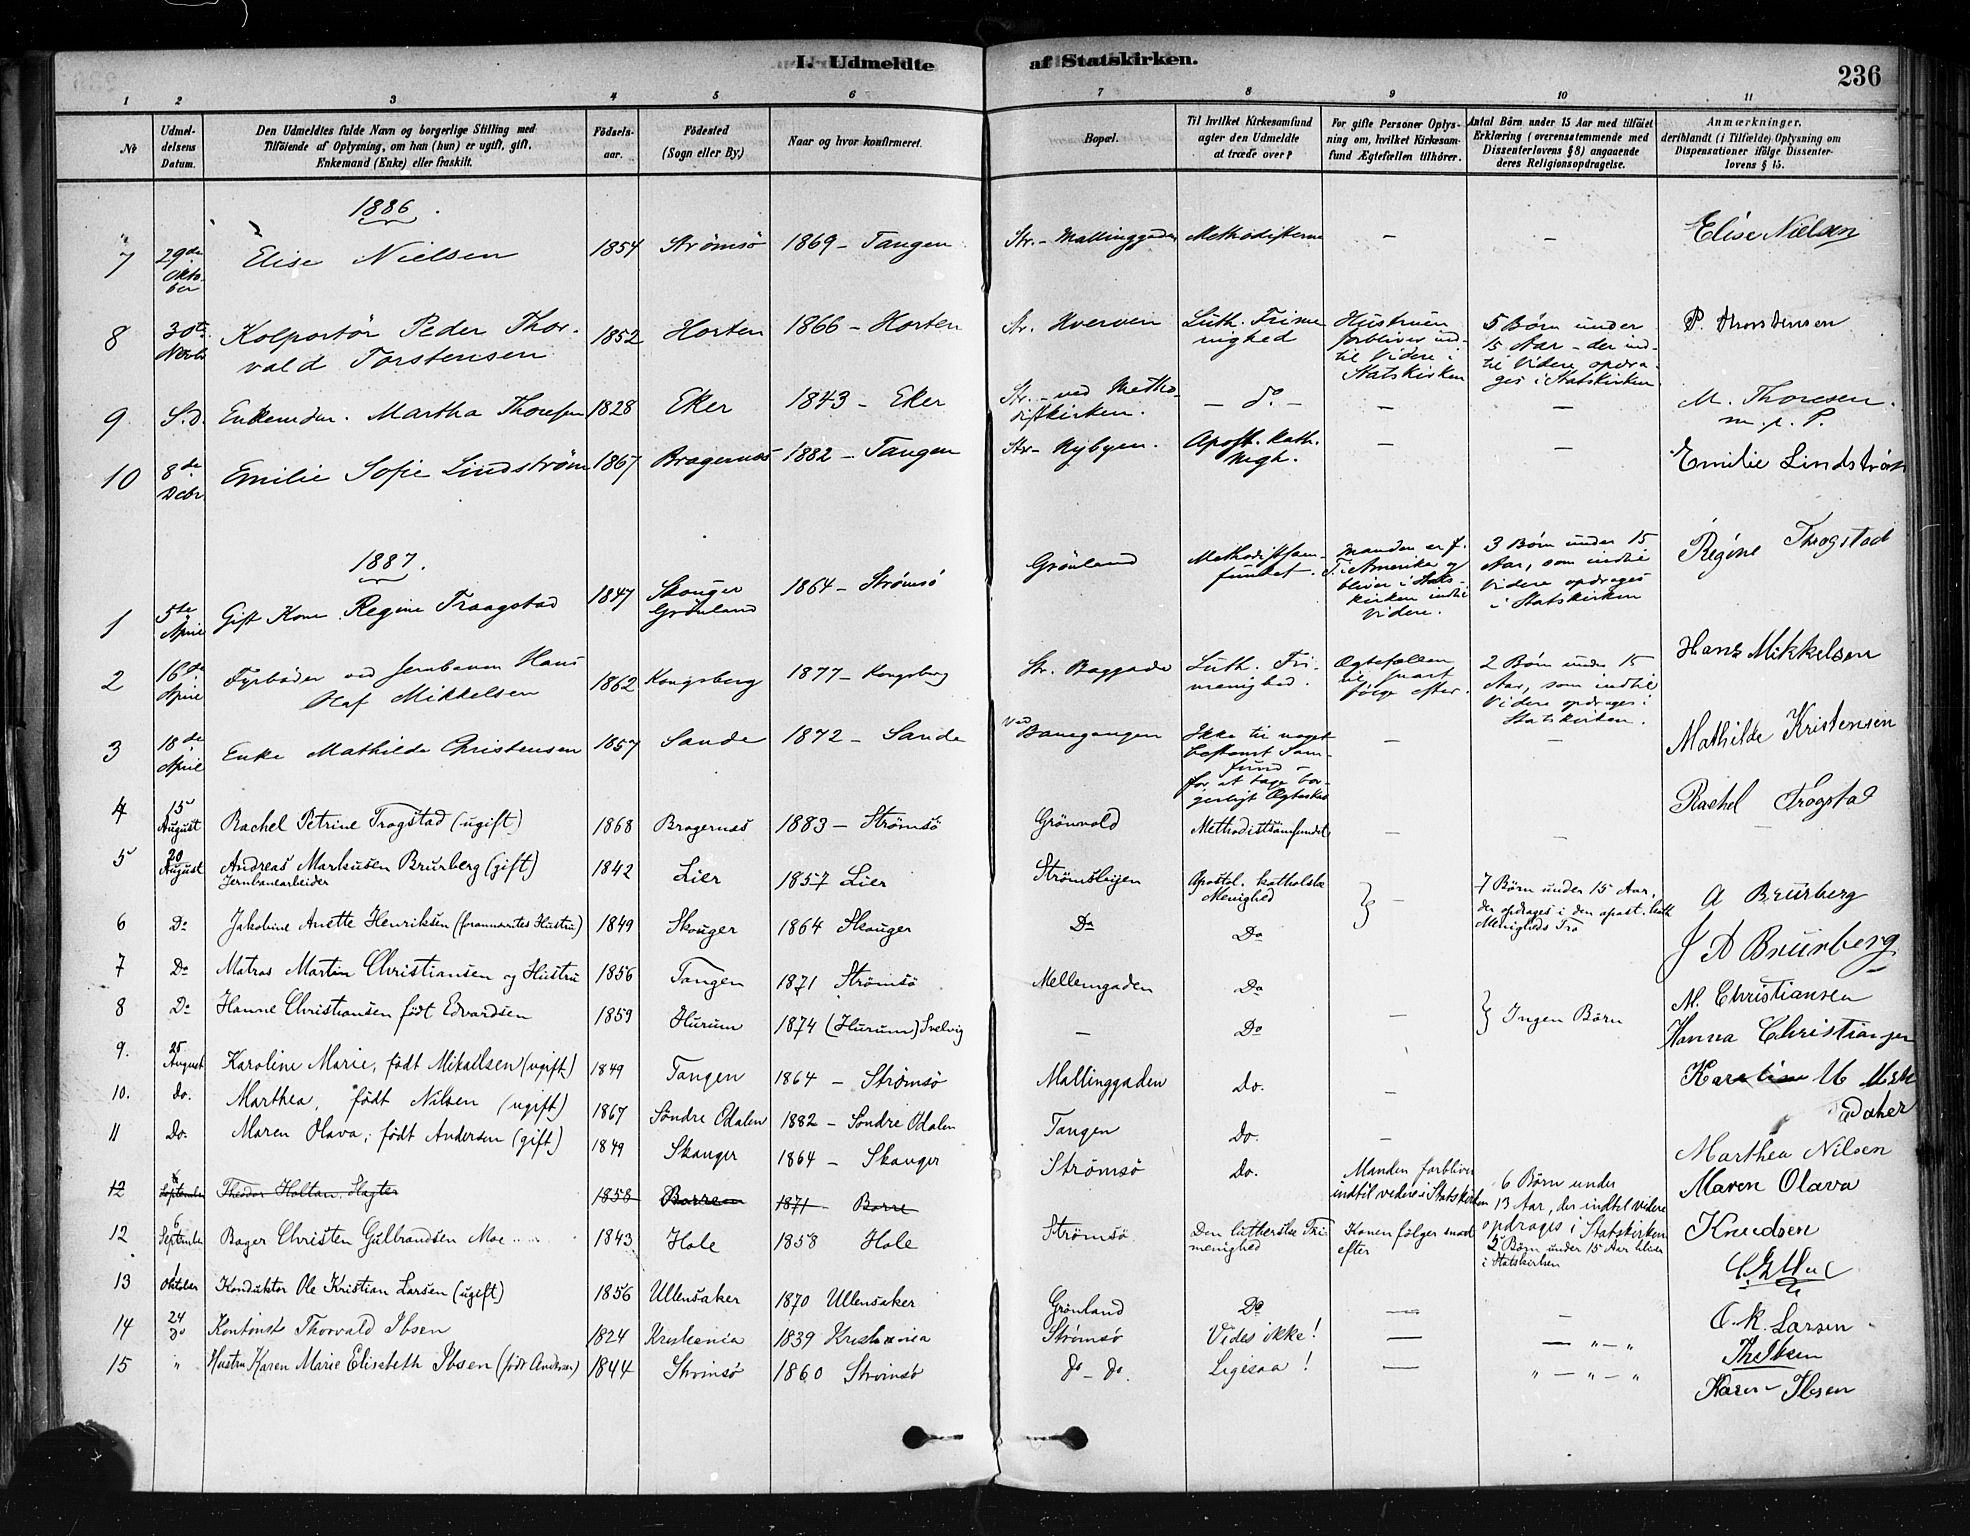 I. Udmeldte af Statskirken.
236
1 2 3 4 5 6 7 8 9 10 11
No
Udmel-
delsens
Datum.
Den Udmeldtes fulde Navn og borgerlige Stilling med
Tilföiende af Oplysning, om han (hun) er ugift, gift,
Enkemand (Enke) eller fraskilt.
Födsels-
aar.
Födested
(Sogn eller By.)
Naar og hvor konfirmeret.
Bopæl.
Til hvilket Kirkesamfund
agter den Udmeldte
at træde over?
For gifte Personer Oplys-
ning om, hvilket Kirkesam-
fund Ægtefællen tilhörer.
Antal Börn under 15 Aar med tilföiet
Erklæring (overensstemmende med
Dissenterlovens § 8) angaaende
deres Religionsopdragelse.
Anmærkninger,
deriblandt (i Tilfælde) Oplysning om
Dispensationer ifölge Dissenter-
lovens § 15.
1886.
7 29de Okto-ber Elise Nielsen 1854 Strömsö 1869 – Tangen Str. – Mallinggaden Methodisterne – – Elise Nielsen
8 30te Novbr Kolportör Peder Thor-
vald Torstensen 1852 Horten 1866 – Horten Str. Hverven Luth. Frime
nighed Hustruen
forbliver ind-
til Videre i
Statskirken 5 Börn under
15 Aar – der ind-
til Videre opdra-
ges i Statskirken P. Thorstensen
9 S.d. Enkemdm. Martha Thoresen 1828 Eker 1843 – Eker Str. – ved Metho-
distkirken. – do – – – M. Thoresen.
m. p. P.
10 8de Decbr Emilie Sofie Lindström 1867 Bragernæs 1882 – Tangen Str – Nybyen. Apost. kath.
Mgh. – – Emilie Lindström
1887.
1 5te April Gift Kone Regine Traagstad 1847 Skouger
Grönland 1864 – Strömsö Grönland Methodistsam-
fundet. Manden er f.
T. i Amerika og
bliver i Stats-
kirken indtil
Videre. 3 Börn under 15
Aar, som indtil
Videre opdrages
i Statskirken Regine Throgstad
2 16de April Fyrböder ved Jernbanen Hans
Olaf Mikkelsen 1862 Kongsberg 1877 – Kongsberg Str. Baggade Luth. Fri-
menighed. Ægtefællen
vil snart
fölge efter. 2 Börn under 15
Aar, som indtil
Videre opdrages i
Statskirken. Hans Mikkelsen
3 18de April Enke Mathilde Christensen 1857 Sande 1872 – Sande Ved
Banegangen Ikke til noget
bestemt Sam-
fund –
for at tage bor-
gerligt Ægteskab – – Mathilde Kristensen
4 15 August Rachel Petrine Trogstad (ugift) 1868 Bragernæs 1883 – Strömsö Grönvold Methodistsamfundet – – Rachel Trogstad
5 20 August Andreas Markusen Brurberg (gift)
Jernbanearbeider 1842 Lier 1857 Lier Strömsbyen Apostol. katholske
Menighed } – 7 Börn under 15 Aar,
der opdrages i den apost. kath
Menigheds Tro A Brurberg
6 Do Jakobine Anette Henriksen (forannævntes Hustru) 1849 Skouger 1864 Skouger Do Do J A Brurberg
7 Do Matros Martin Christiansen og Hustru 1856 Tangen 1871 Strömsö Mellemgaden Do M. Christiansen
8 Do Hanne Christiansen födt Edvardsen 1859 Hurum 1874 (Hurum) Svelvig – Do – } Ingen Börn Hanna Christiansen
9. 25 August Karoline Marie, födt Mikaelsen (ugift) 1849 Tangen 1864 – Strömsö Mallinggaden Do. – Karoline M
10. do. Marthea, födt Nilsen (ugift) 1867 Söndre Odalen 1882 – Söndre Odalen Tangen Do. – Marthea Nilsen
11 Do. Maren Olava, födt Andersen (gift) 1849 Skauger 1864 – Skauger Strömsö Do. Manden forbliver
indtil videre i Statskirken 6 Börn under
13 Aar, der indtil videre
opdrages i Statskirken Maren Olava
Knudsen
12 September Theodor Holtan, Slagter 1858 Borre 1871 – Borre
12 6 September Bager Christen Gulbrandsen Moe 1843 Hole 1858 Hole Strömsö Den lutherske Fri-
menighed Konen fölger snart
efter 2 Börn under 15 Aar bliver
i Statskirken
13 1 Oktober Konduktör Ole Kristian Larsen (ugift) 1856 Ullensaker 1870 Ullensaker Grönland Do – – O. K. Larsen
14 24 do Kontorist Thorvald Ibsen 1824 Kristiania 1839 Kristiania Strömsö Vides ikke! – – " – " Th Ibsen
15 " Hustru Karen Marie Elisabeth Ibsen (födt Andersen) 1844 Strömsö 1860 Strömsö do – do. Ligesaa! – " – " – " Karen Ibsen